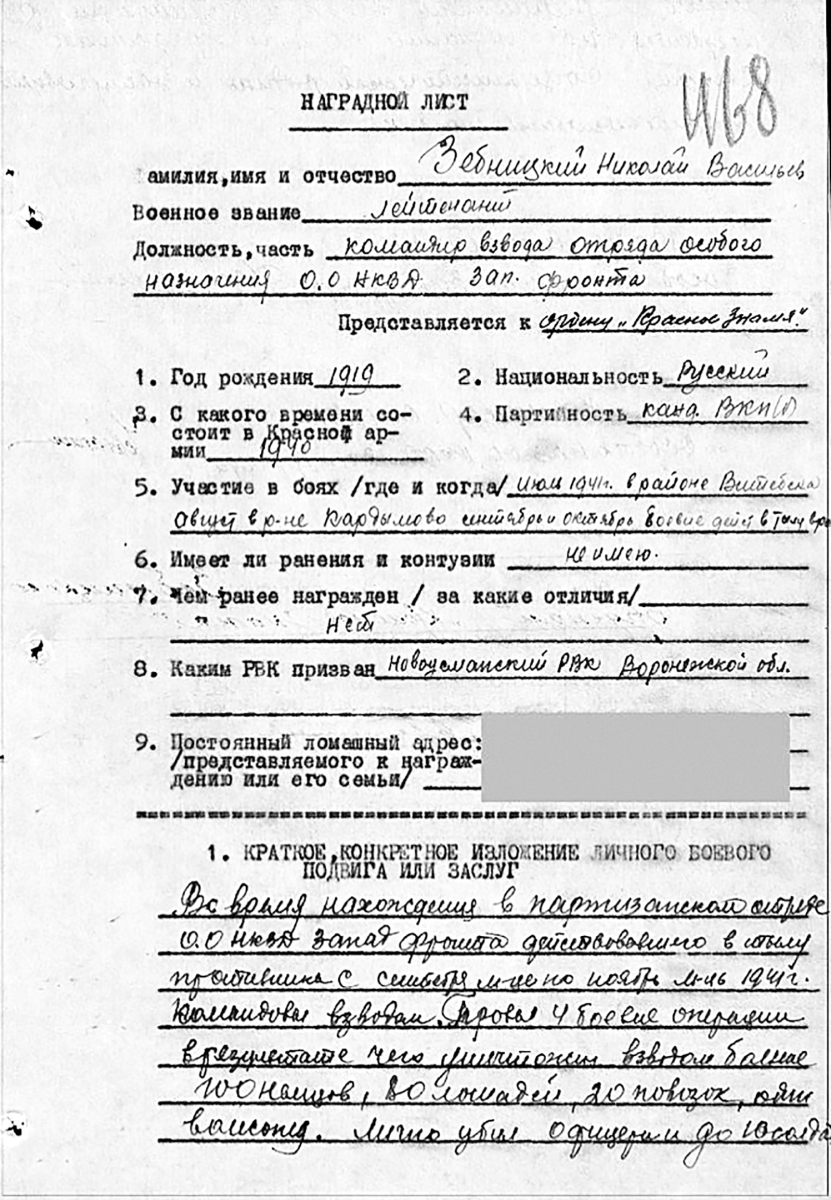 468
НАГРАДНОЙ ЛИСТ
амилия,имя и отчество Зебницкий Николай Васильев
Военное звание лейтенант
Должность,часть командир взвода отряда особого
назначения О.О НКВД Зап. фронта
Представляется к ордену „Красное Знамя".
1. Год рождения 1919 2. Национальность Русский
3. С какого времени со- 4. Партийность канд. ВКП(б)
стоит в Красной ар-
мии 1940
5. Участие в боях /где и когда/ Июль 1941г. в районе Витебска
Август в р-не Кардымово сентябрь и октябрь боевые дейст в тылу
6. Имеет ли ранения и контузии не имею.
7. Чем ранее награжден / за какие отличия/
нет
8. Каким РВК призван Новоусманский РВК Воронежской обл.
9. Постоянный ломашный адрес:
/представляемого к награж-
дению или его семьи/
1. КРАТКОЕ,КОНКРЕТНОЕ ИЗЛОЖЕНИЕ ЛИЧНОГО БОЕВОГО
ПОДВИГА ИЛИ ЗАСЛУГ
Во время нахождения в партизанском отряде
О.О НКВД Запад фронта действовавшего в тылу
противника с сентября м-це по ноябрь м-ць 1941г.
Командовал взводом. Провел 4 боевые операции
в результате чего уничтожил взводом более
100 немцев, 80 лошадей, 20 повозок,
Лично убил офицера и до 10 солдат